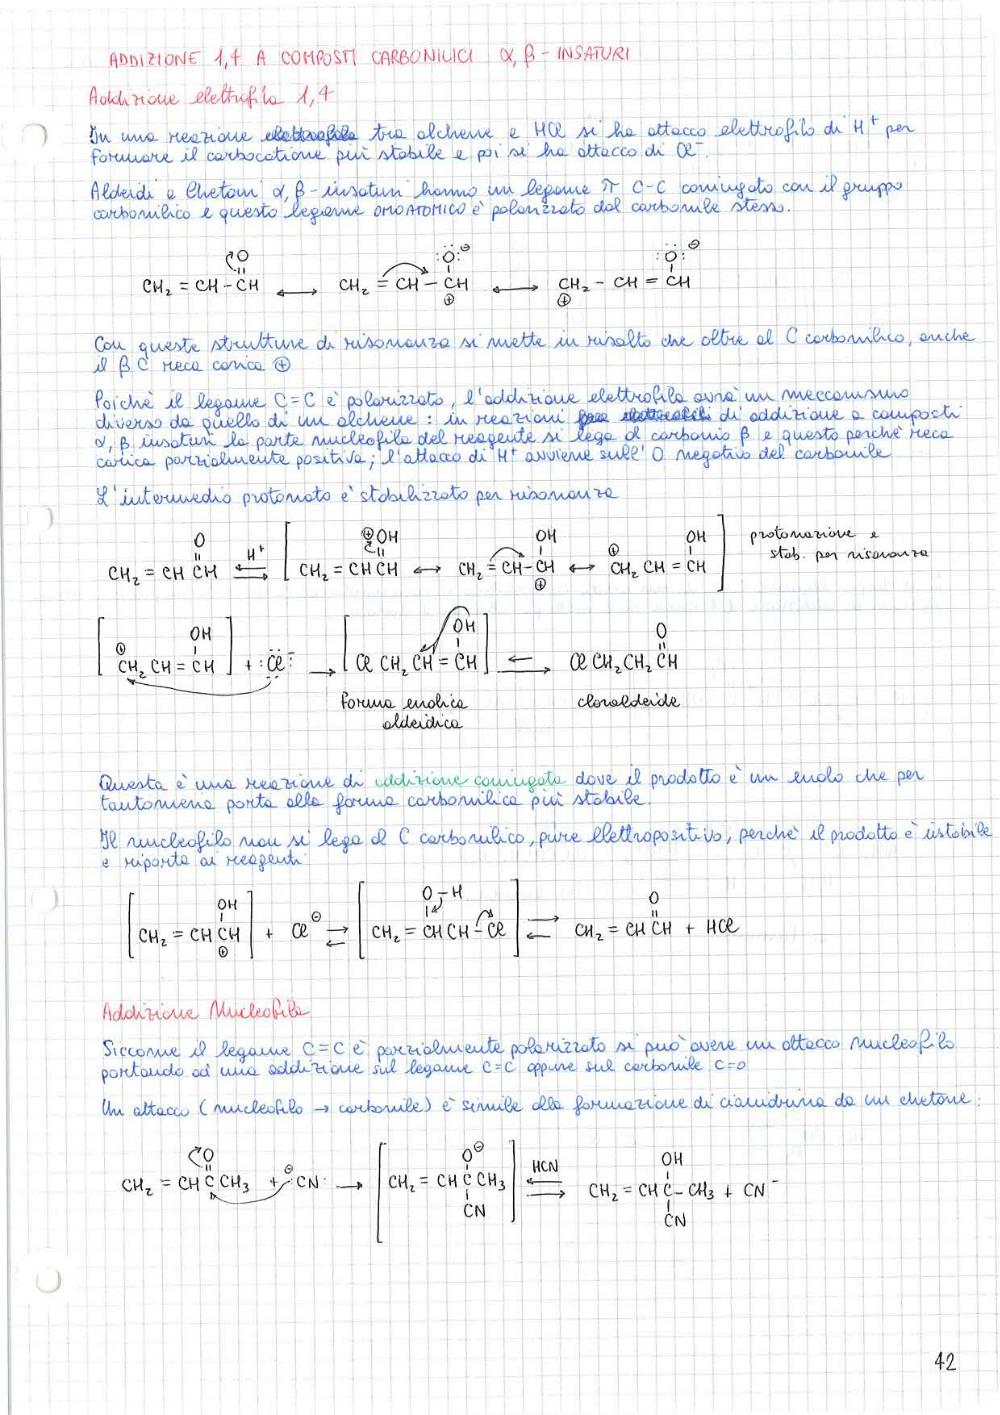 ADDIZIONE 1,4 A COMPOSTI CARBONILICI α, β - INSATURI
Addizione elettrofila 1,4
In una reazione elettrofila tra alchene e HCl si ha attacco elettrofilo di H⁺ per
formare il carbocatione più stabile e poi si ha attacco di Cl⁻.
Aldeidi e Chetoni α, β - insaturi hanno un legame π C-C coniugato con il gruppo
carbonilico e questo legame OMOATOMICO è polarizzato dal carbonile stesso.
O :Ö:⊖ :Ö:⊖
CH₂ = CH - CH ⟷ CH₂ = CH - CH ⟷ CH₂ - CH = CH
⊕ ⊕
Con queste strutture di risonanza si mette in risalto che oltre al C carbonilico, anche
il β C reca carica ⊕
Poiché il legame C=C è polarizzato, l'addizione elettrofila avrà un meccanismo
diverso da quello di un alchene : in reazioni di addizione a composti
α, β insaturi la parte nucleofila del reagente si lega al carbonio β e questo perché reca
carica parzialmente positiva; l'attacco di H⁺ avviene sull' O negativo del carbonile
L'intermedio protonato è stabilizzato per risonanza
O ⊕OH OH OH
CH₂ = CH CH ⇌ H⁺ [ CH₂ = CHCH ⟷ CH₂ = CH-CH ⟷ ⊕ CH₂ CH = CH ] protonazione e
⊕ stab. per risonanza
OH OH O
[ ⊕ CH₂ CH = CH ] + :Cl:⁻ → [ Cl CH₂ CH = CH ] ⇌ Cl CH₂CH₂ CH
forma enolica cloroaldeide
aldeidica
Questa è una reazione di addizione coniugata dove il prodotto è un enolo che per
tautomeria porta alla forma carbonilica più stabile.
Il nucleofilo non si lega al C carbonilico, pure elettropositivo, perché il prodotto è instabile
e riporta ai reagenti:
OH O-H O
[ CH₂ = CH CH ] + Cl⊖ ⇌ [ CH₂ = CHCH - Cl ] ⇌ CH₂ = CH CH + HCl
⊕
Addizione Nucleofila
Siccome il legame C=C è parzialmente polarizzato si può avere un attacco nucleofilo
portando ad una addizione sul legame C=C oppure sul carbonile C=O
Un attacco ( nucleofilo → carbonile) è simile alla formazione di cianidrina da un chetone:
O O⊖ OH
CH₂ = CH C CH₃ + ⊖:CN: → [ CH₂ = CH C CH₃ ] ⇌ HCN CH₂ = CH C - CH₃ + CN⁻
CN CN
42